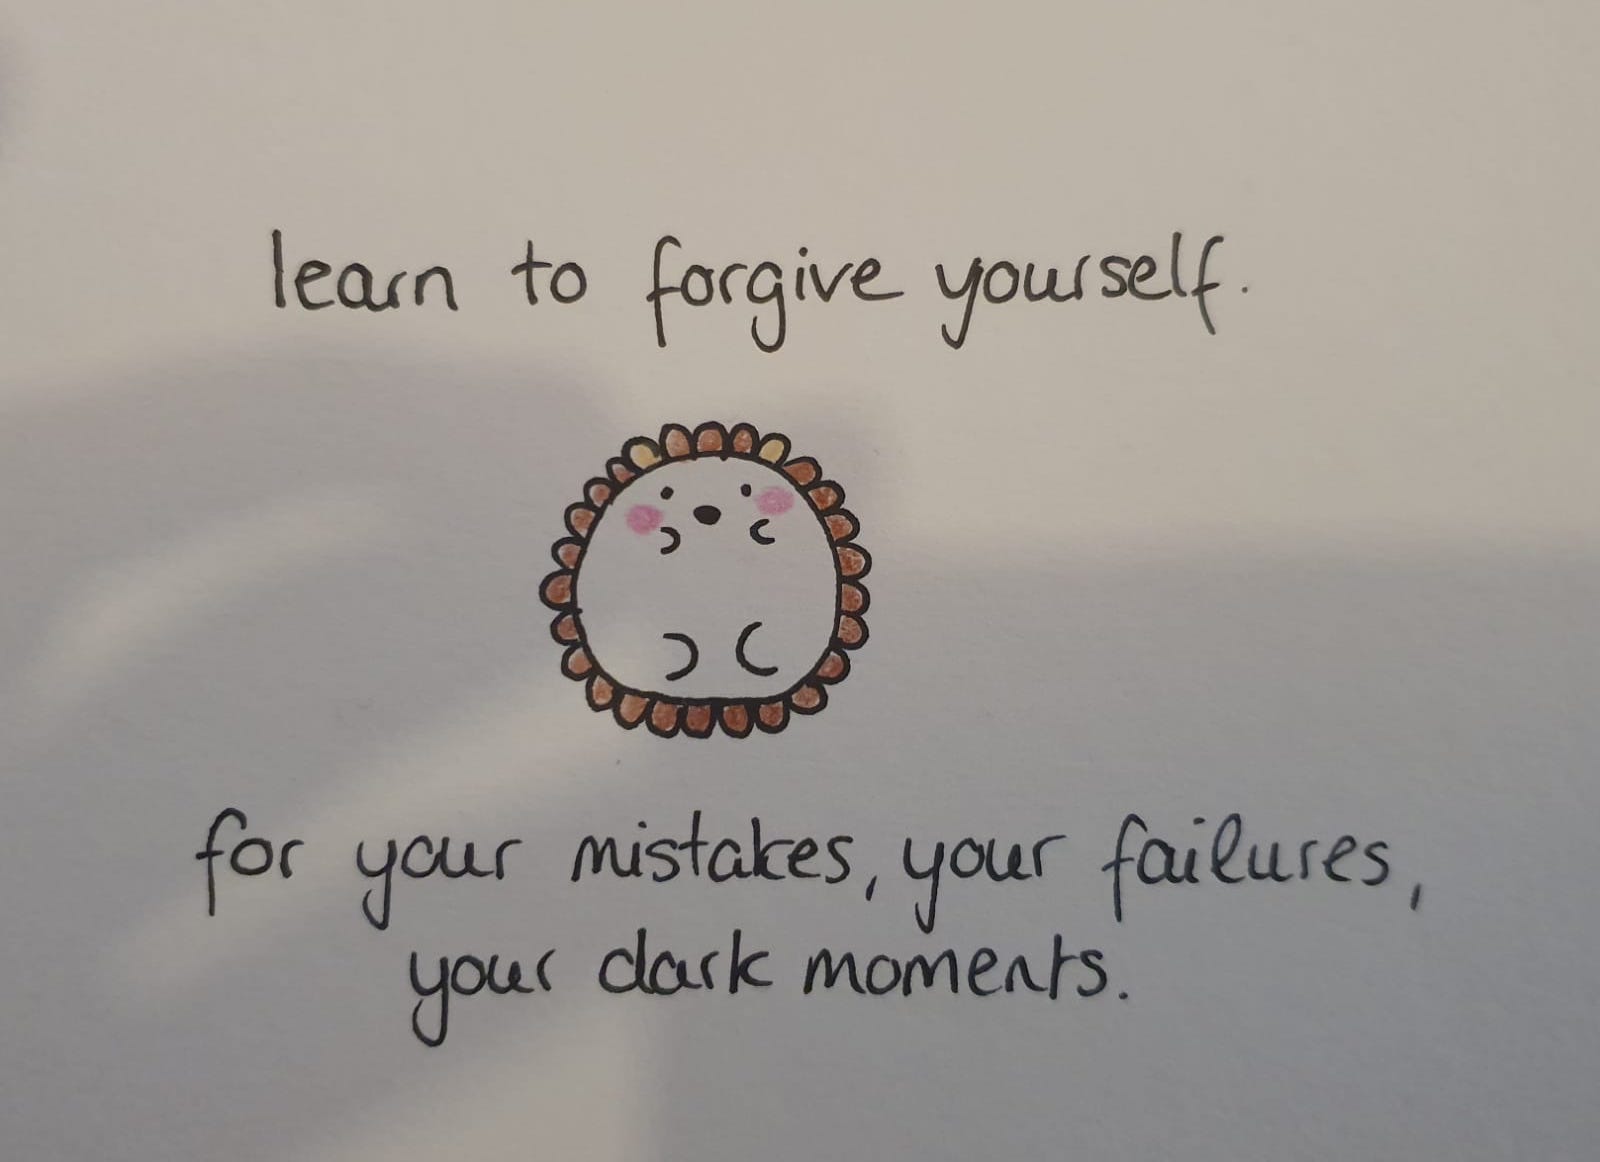 learn to forgive yourself.
for your mistakes, your failures,
your dark moments.